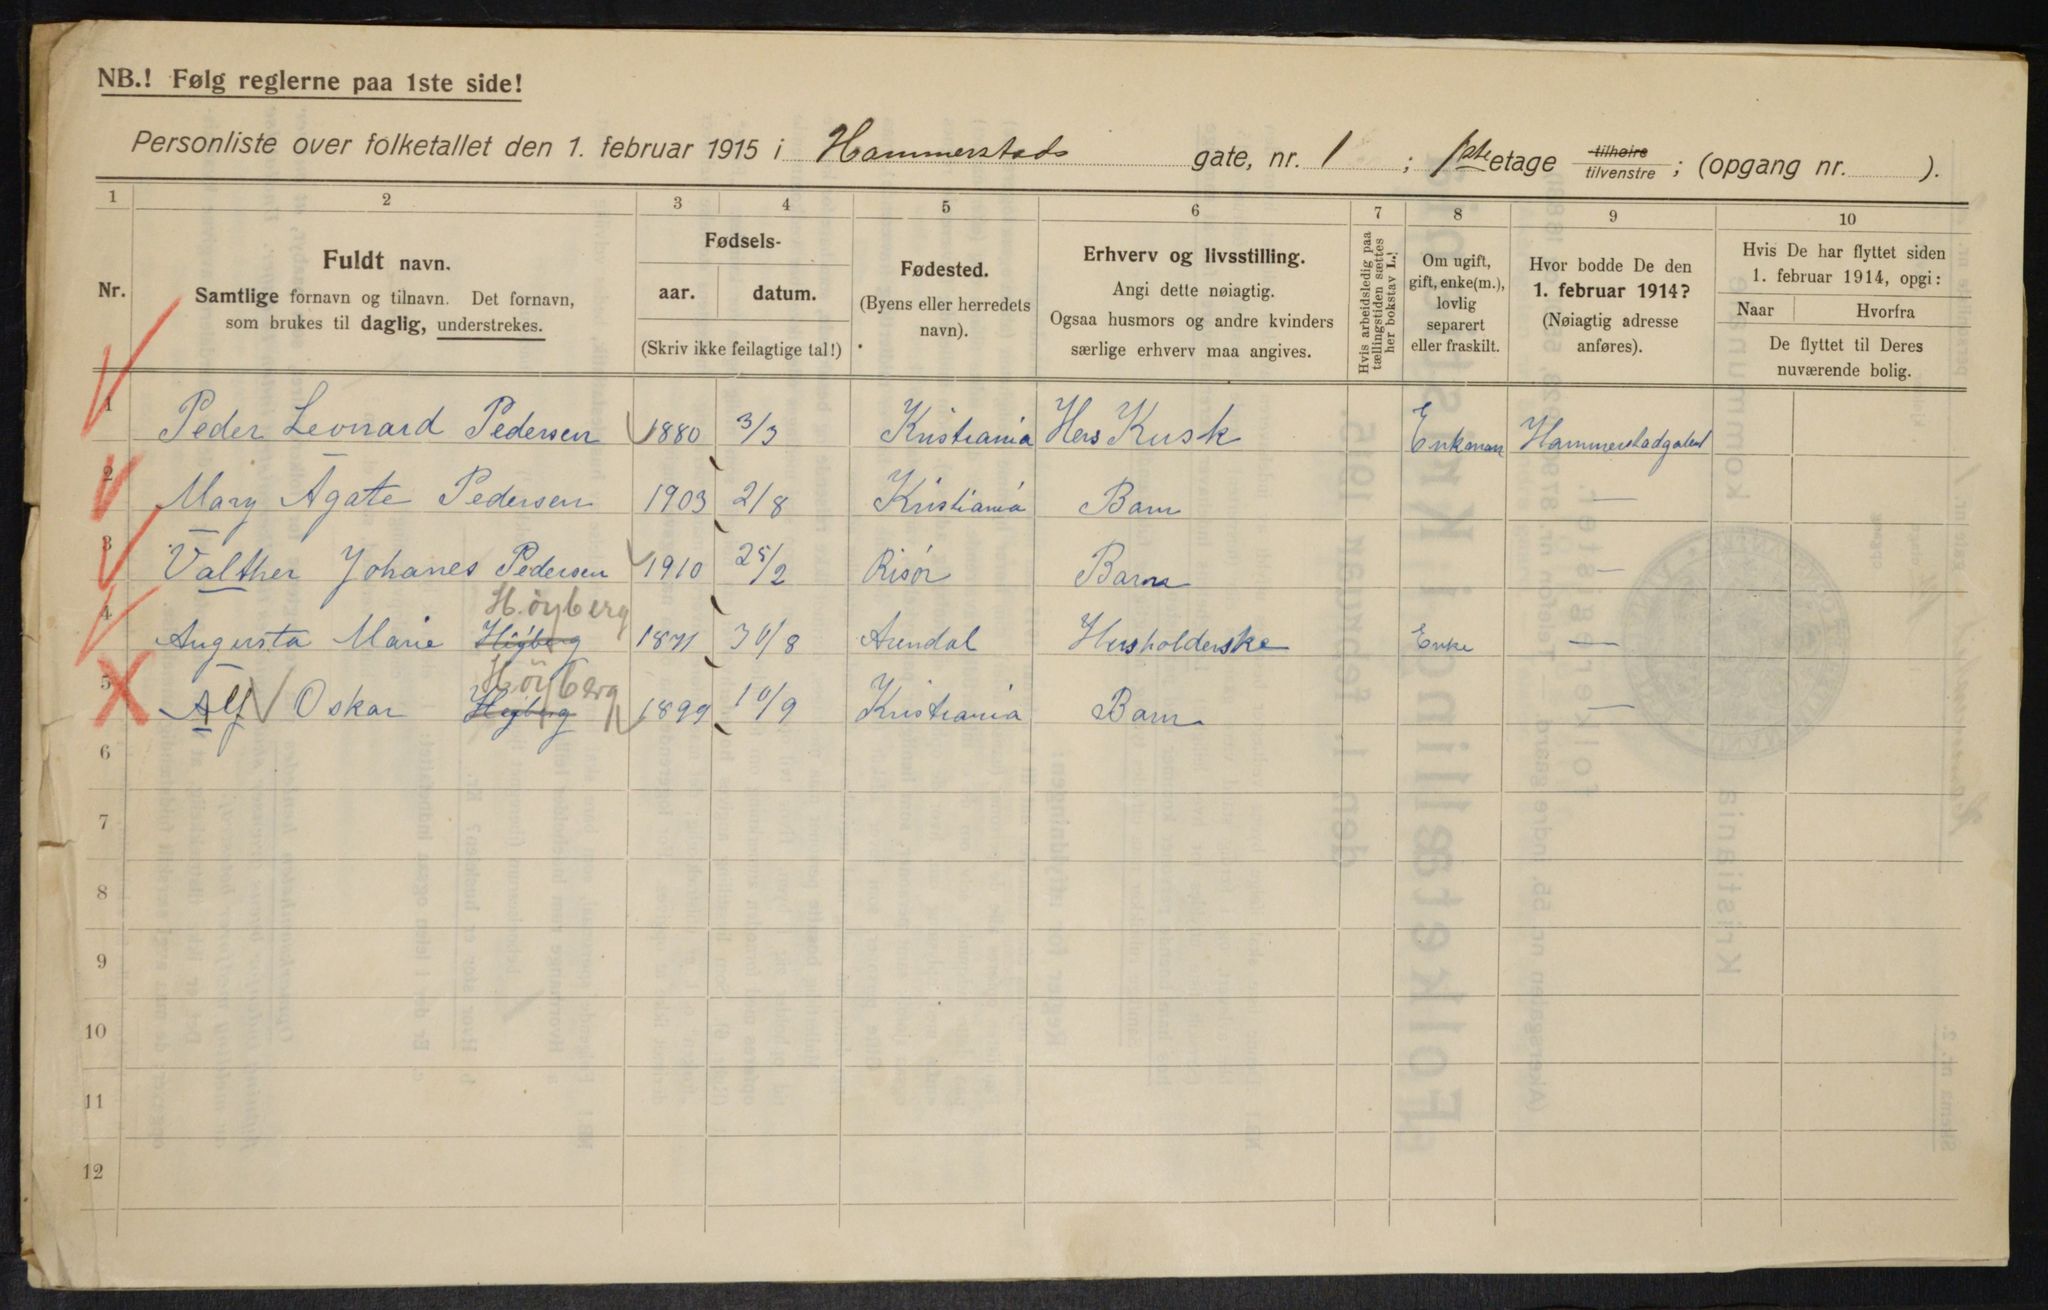 NB.! Følg reglerne paa 1ste side!
Personliste over folketallet den 1. februar 1915 i Hammerstads gate, nr. 1 ; 1ste etage tilhøire tilvenstre ; (opgang nr. ).
1 2 3 4 5 6 7 8 9 10
Nr.
Fuldt navn.
Samtlige fornavn og tilnavn. Det fornavn,
som brukes til daglig, understrekes.
Fødsels-
aar. datum.
(Skriv ikke feilagtige tal!)
Fødested.
(Byens eller herredets
navn).
Erhverv og livsstilling.
Angi dette nøiagtig.
Ogsaa husmors og andre kvinders
særlige erhverv maa angives.
Hvis arbeidsledig paa
tællingstiden sættes
her bokstav L.!
Om ugift,
gift, enke(m.),
lovlig
separert
eller fraskilt.
Hvor bodde De den
1. februar 1914?
(Nøiagtig adresse
anføres).
Hvis De har flyttet siden
1. februar 1914, opgi:
Naar Hvorfra
De flyttet til Deres
nuværende bolig.
1 Peder Leonard Pedersen 1880 3/3 Kristiania Kusk Enkeman
2 Mary Agate Pedersen 1903 2/8 Kristiania Barn —
3 Valther Johanes Pedersen 1910 25/2 Risör Barn —
Höyberg
4 Augusta Marie 1871 30/8 Arendal Husholderske Enke —
Höyberg
5 Alf Oskar 1899 10/9 Kristiania Barn —
6
7
8
9
10
11
12